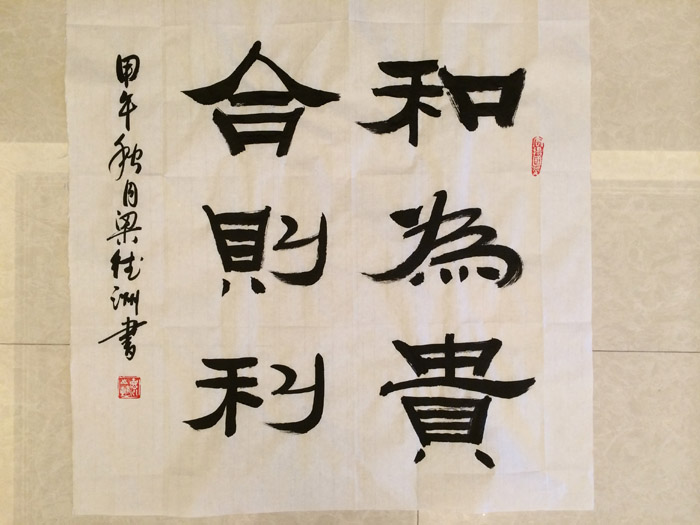 和為貴
合則利
甲午秋月梁德洲書